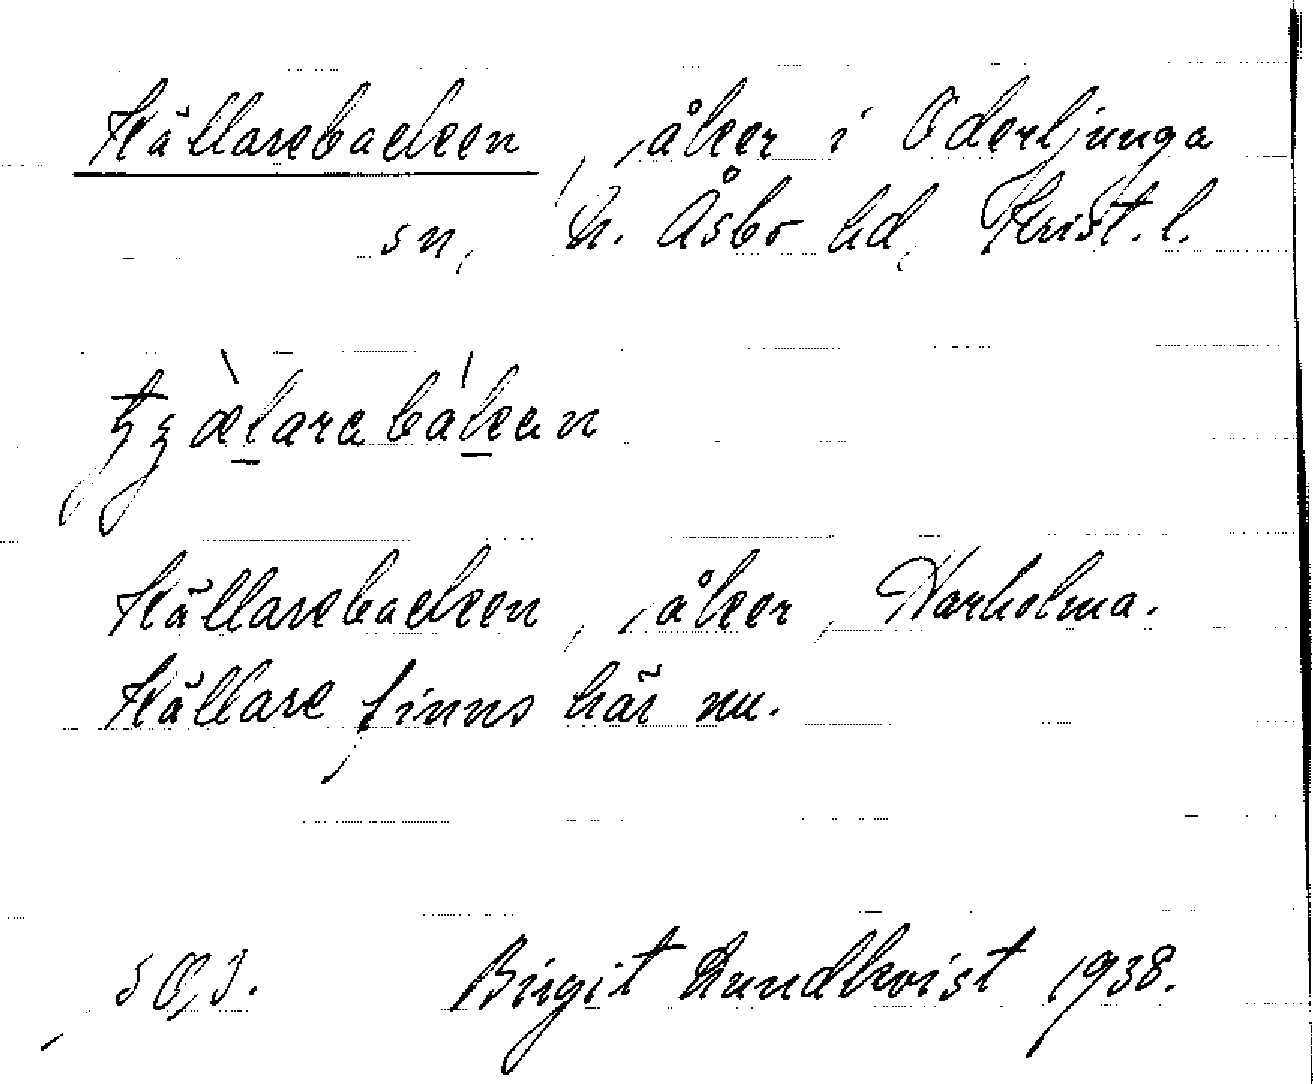 Källarebacken, åker i Oderljunga
sn, N. Åsbo hd, Krist. l.
Källarebacken, åker, Harholma.
Källare finns här nu.
Birgit Lundkvist 1938.